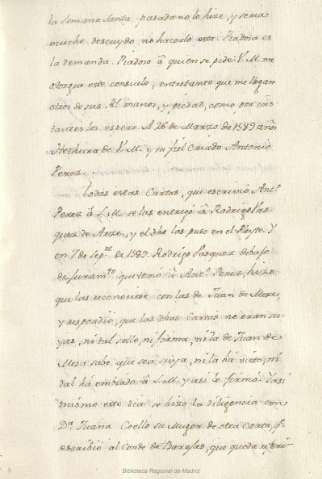 la Semana Santa pasada no lo hize, y sera
mucho descuydo no hacerlo esta. Piadosa es
la demanda. Piadoso â quien se pide V.M. me
otorgue este consuelo, entretanto que me llegan
otros de sus R.s manos, y piedad, como por ins
tantes los espero. A 26 de Marzo de 1589 años
Hechura de V.M. y su fiel Criado Antonio
Perez.
Todas estas Cartas, que escrivió Ant.o
Perez â S.M. se las entregó â Rodrigo Vaz
quez de Arze, y el dho las puso en el Proceso. Y
en 7 de Sep.re de 1589. Rodrigo Vazquez debajo
de juram.to que tomó â Ant.o Perez, hizo
que las reconociese con las de Juan de Mesa,
y respondió, que las dhas Cartas no eran su
yas, ni del sello, ni forma, ni la de Juan de
Mesa sabe que sea suya, ni la ha visto, ni
tal há embiado â S.M. y assi lo firmó. Y assi
mismo este dia se hizo la diligencia con
D.a Juana Coello su Muger de otra Carta, q.e
escribió al Conde de Barajas, que queda
Biblioteca Regional de Madrid